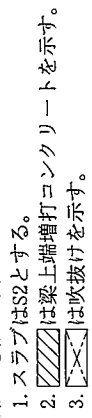 1. スラブはS2とする。
2. は梁上端増打コンクリートを示す。
3. は吹抜けを示す。